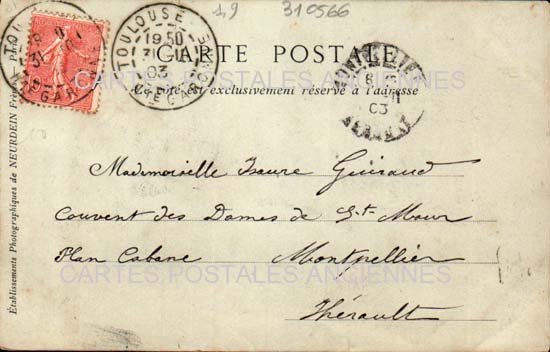 1,9 310566
TOULOUSE
19 50
31
03
Hte GARONNE
CARTE POSTALE
Ce côté est exclusivement réservé à l'adresse
MONTPELLIER
03
HERAULT
CARTES POSTALES ANCIENNES
Mademoiselle Isaure Guiraud
Couvent des Dames de St Maur
Plan Cabane Montpellier
Hérault
CARTES POSTALES ANCIENNES
Établissements Photographiques de NEURDEIN Frères